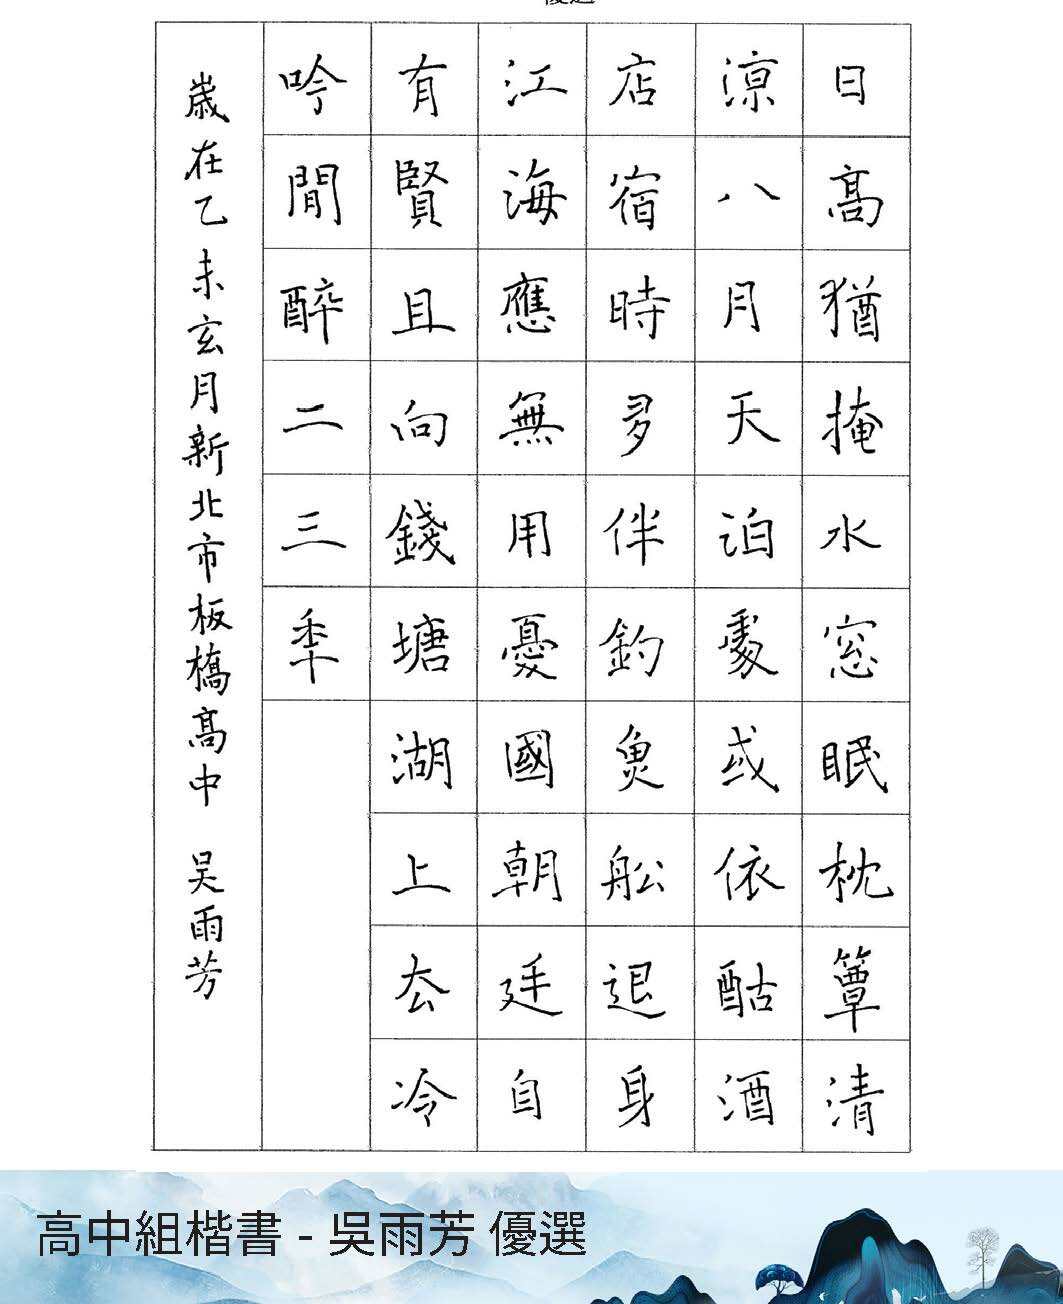 日髙猶掩水窓眠枕簟清
涼八月天泊處或依酤酒
店宿時多伴釣魚舩退身
江海應無用憂國朝廷自
有賢且向錢塘湖上厺冷
吟閒醉二三秊
歲在乙未玄月新北市板橋髙中 吳雨芳
高中組楷書 - 吳雨芳 優選